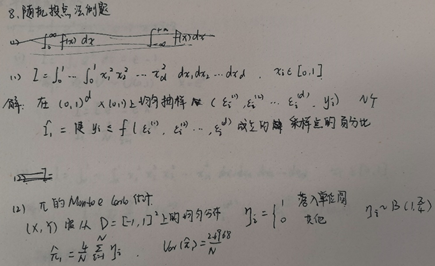 8. 随机投点法例题
(1) ∫₀^∞ f(x) dx ∫₋∞^+∞ f(x) dx
(1) I = ∫₀¹ ⋯ ∫₀¹ x₁² x₂² ⋯ x_d² dx₁dx₂ ⋯ dx_d . x_i ∈ [0,1]
解: 在 (0,1)^d × (0,1) 上均匀抽样 (ε_i^(1), ε_i^(2) ⋯ ε_i^(d), y_i) N个
Î₁ = 使 y_i ≤ f(ε_i^(1), ε_i^(2) ⋯, ε_i^(d)) 成立的 采样点的百分比
(2) π 的 Monte Carlo 估计
(X, Y) 服从 D = [-1,1]² 上的均匀分布 η_i = { 1 落入单位圆 0 其他 η_i ~ B(1, π/4)
π̂₁ = 4/N Σ_{i=1}^N η_i . Var(π̂) = 2.6968/N